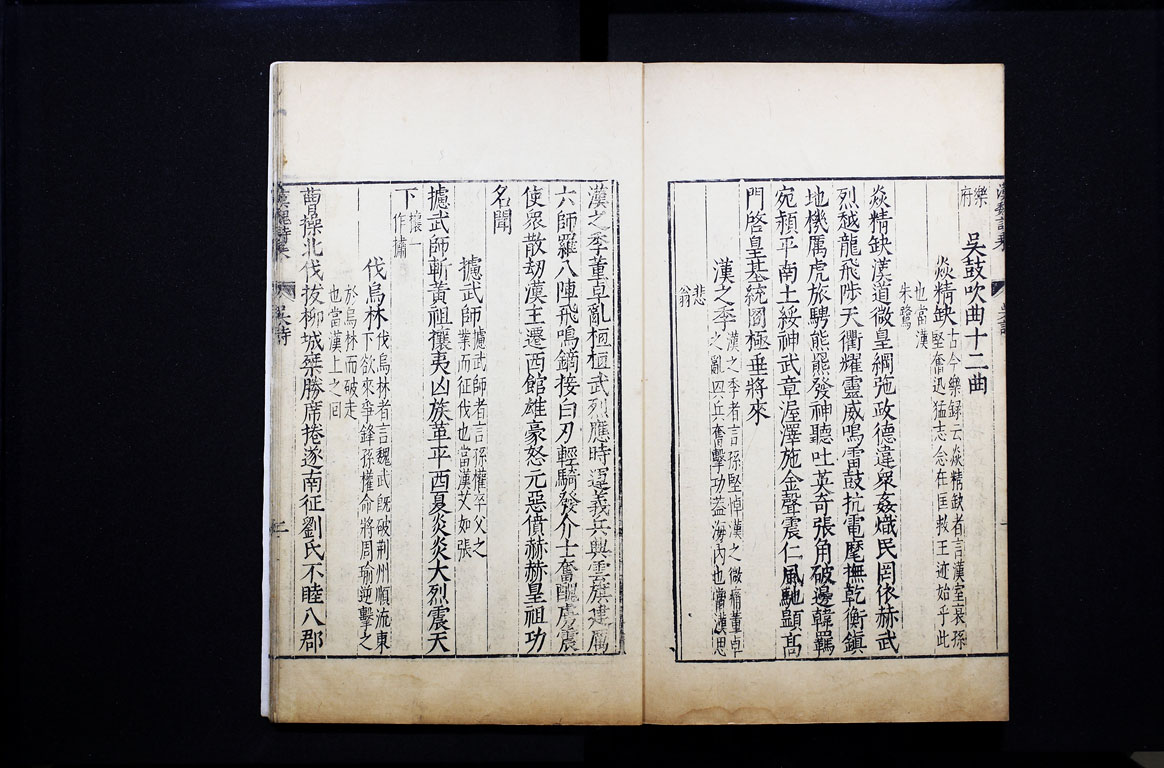 樂府
吳鼓吹曲十二曲
炎精缺古今樂録云炎精缺者言漢室衰孫堅奮迅猛志念在匡救王迹始乎此
也當漢朱鷺
炎精缺漢道微皇綱弛政德違衆姦熾民罔依赫武
烈越龍飛陟天衢耀靈威鳴雷鼓抗電麾撫乾衡鎮
地機厲虎旅騁熊羆發神聽吐英奇張角破邊韓羈
宛潁平南土綏神武章渥澤施金聲震仁風馳顯高
門啓皇基統罔極垂將來
漢之季漢之季者言孫堅悼漢之微痛董卓之亂興兵奮擊功蓋海内也當漢思
悲翁
漢之季董卓亂桓桓武烈應時運義兵興雲旗建厲
六師羅八陣飛鳴鏑接白刃輕騎發介士奮醜虜震
使衆散劫漢主遷西館雄豪怒元惡僨赫赫皇祖功
名聞
攄武師攄武師者言孫權卒父之業而征伐也當漢艾如張
攄武師斬黃祖攘夷凶族革平西夏炎炎大烈震天
下攘一作攄
伐烏林伐烏林者言魏武既破荆州順流東下欲來爭鋒孫權命將周瑜逆擊之
於烏林而破走也當漢上之回
曹操北伐拔柳城桀勝席捲遂南征劉氏不睦八郡
漢魏詩集
吳詩